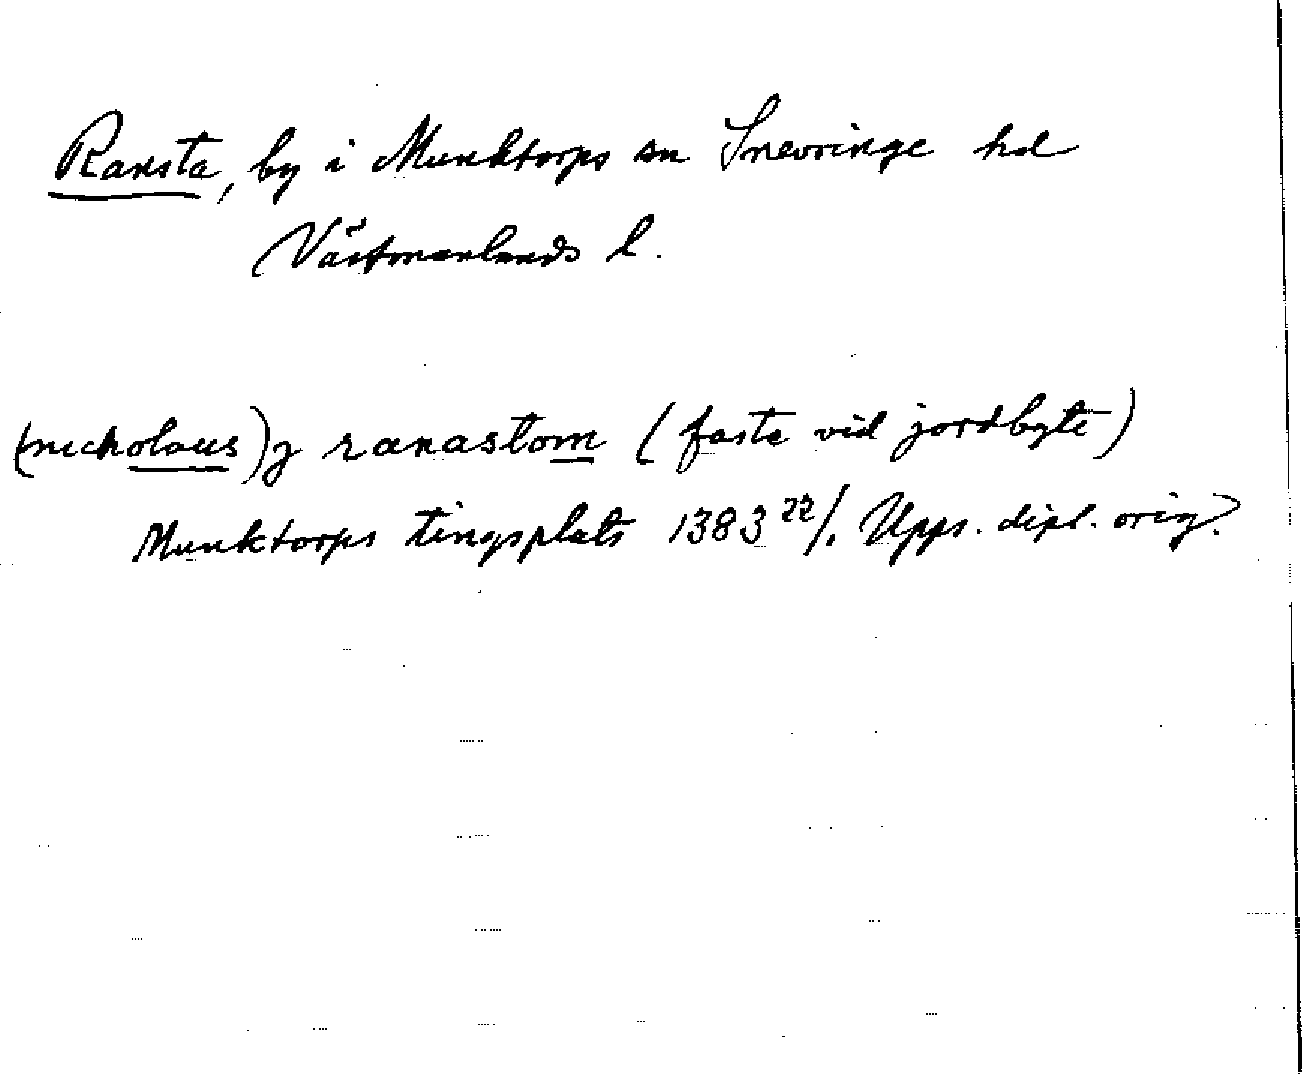 Ransta, by i Munktorps sn Snevringe hd
Västmanlands l.
(nicholaus) j ranastom (faste vid jordbyte)
Munktorps tingsplats 1383 22/1. Upps. dipl. orig.